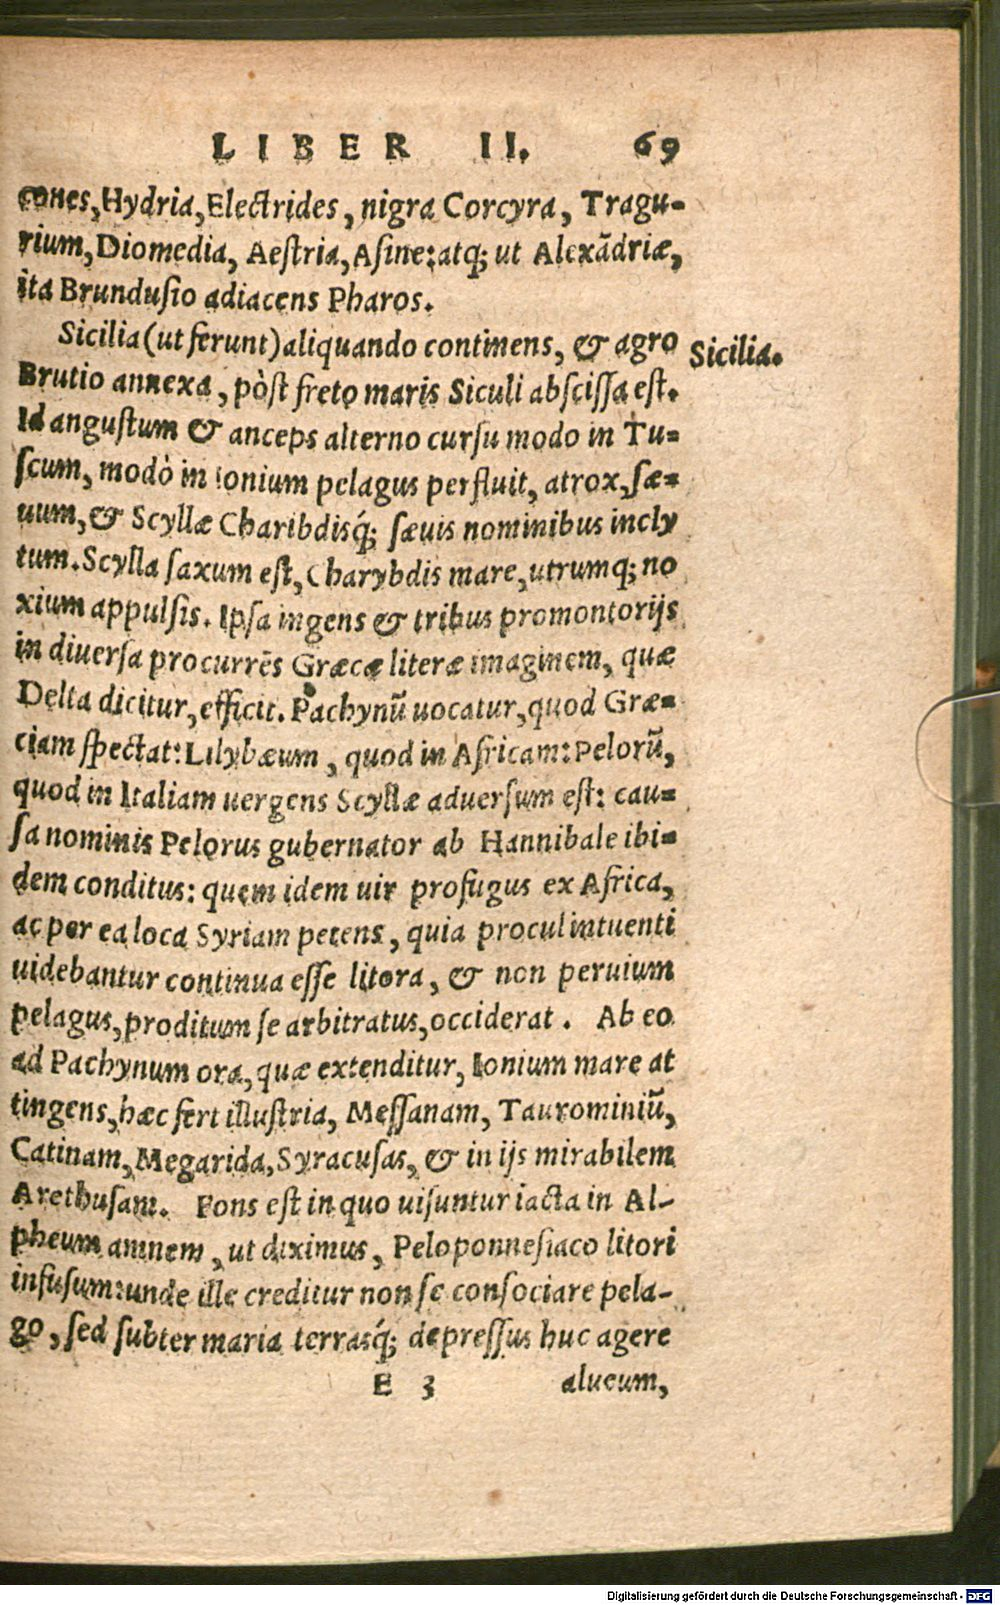 LIBER II. 69
cones, Hydria, Electrides, nigra Corcyra, Tragu-
rium, Diomedia, Aeſtria, Aſine: atq; ut Alexãdriæ,
ita Brunduſio adiacens Pharos.
Sicilia (ut ferunt) aliquando continens, & agro
Sicilia.
Brutio annexa, pòſt freto maris Siculi abſciſſa eſt.
Id anguſtum & anceps alterno curſu modo in Tu-
ſcum, modò in Ionium pelagus perfluit, atrox, ſæ-
uum, & Scyllæ Charibdisq́; ſæuis nominibus incly
tum. Scylla ſaxum eſt, Charybdis mare, utrumq; no
xium appulſis. Ipſa ingens & tribus promontorijs
in diuerſa procurrẽs Græcæ literæ imaginem, quæ
Delta dicitur, efficit. Pachynũ uocatur, quod Græ-
ciam ſpectat: Lilybæum, quod in Africam: Pelorũ,
quod in Italiam uergens Scyllæ aduerſum eſt: cau-
ſa nominis Pelorus gubernator ab Hannibale ibi-
dem conditus: quem idem uir profugus ex Africa,
ac per ea loca Syriam petens, quia procul intuenti
uidebantur continua eſſe litora, & non peruium
pelagus, proditum ſe arbitratus, occiderat. Ab eo
ad Pachynum ora, quæ extenditur, Ionium mare at
tingens, hæc fert illuſtria, Meſſanam, Taurominiũ,
Catinam, Megarida, Syracuſas, & in ijs mirabilem
Arethuſam. Fons eſt in quo uiſuntur iacta in Al-
pheum amnem, ut diximus, Peloponneſiaco litori
infuſum: unde ille creditur non ſe conſociare pela-
go, ſed ſubter maria terrasq́; depreſſus huc agere
E 3 alueum,
Digitalisierung gefördert durch die Deutsche Forschungsgemeinschaft - DFG